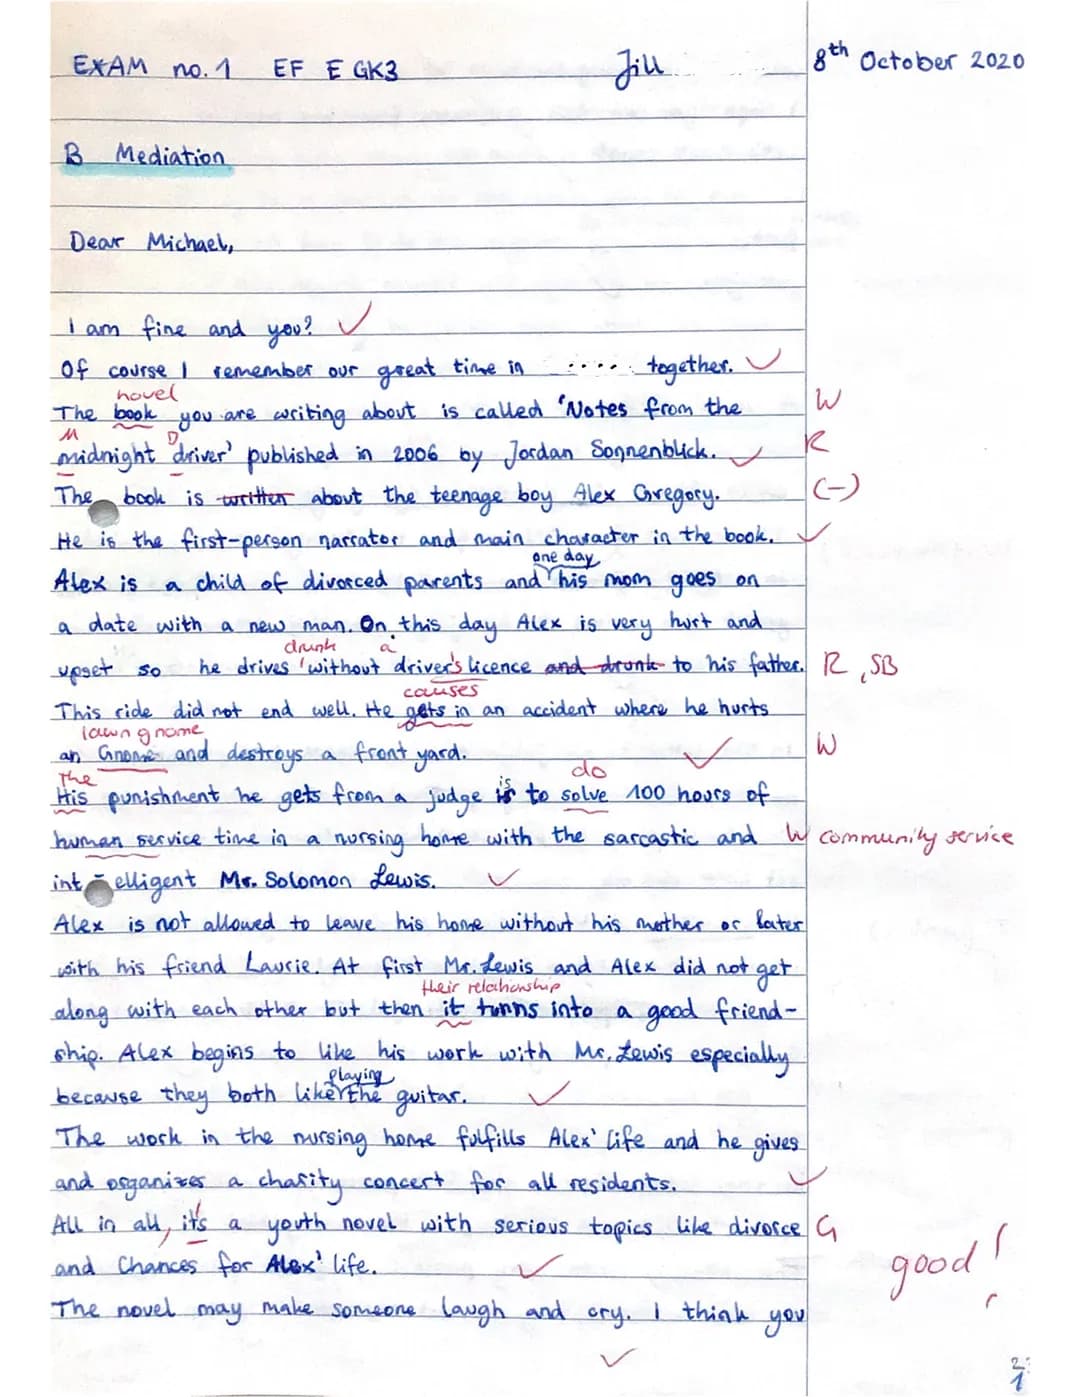 EXAM no. 1 EF E GK3 Jill 8th October 2020
B Mediation
Dear Michael,
I am fine and you? ✓
Of course I remember our great time in ..... together. ✓
novel
The book you are writing about is called 'Notes from the W
M D
midnight driver' published in 2006 by Jordan Sonnenblick. ✓ R
The book is written about the teenage boy Alex Gregory. (-)
He is the first-person narrator and main character in the book. ✓
one day
Alex is a child of divorced parents and his mom goes on
a date with a new man. On this day Alex is very hurt and
drunk a
upset so he drives without driver's licence and drunk to his father. R, SB
causes
This ride did not end well. He gets in an accident where he hurts
lawn gnome
an Gnome and destroys a front yard. ✓ W
The is do
His punishment he gets from a judge is to solve 100 hours of
human service time in a nursing home with the sarcastic and W community service
int-elligent Mr. Solomon Lewis. ✓
Alex is not allowed to leave his home without his mother or later
with his friend Laurie. At first Mr. Lewis and Alex did not get
their relationship
along with each other but then it turns into a good friend-
ship. Alex begins to like his work with Mr. Lewis especially
playing
because they both like the guitar. ✓
The work in the nursing home fulfills Alex' life and he gives
and organizes a charity concert for all residents. ✓
All in all, it's a youth novel with serious topics like divorce G
and Chances for Alex' life. ✓ good!
The novel may make someone laugh and cry. I think you
✓